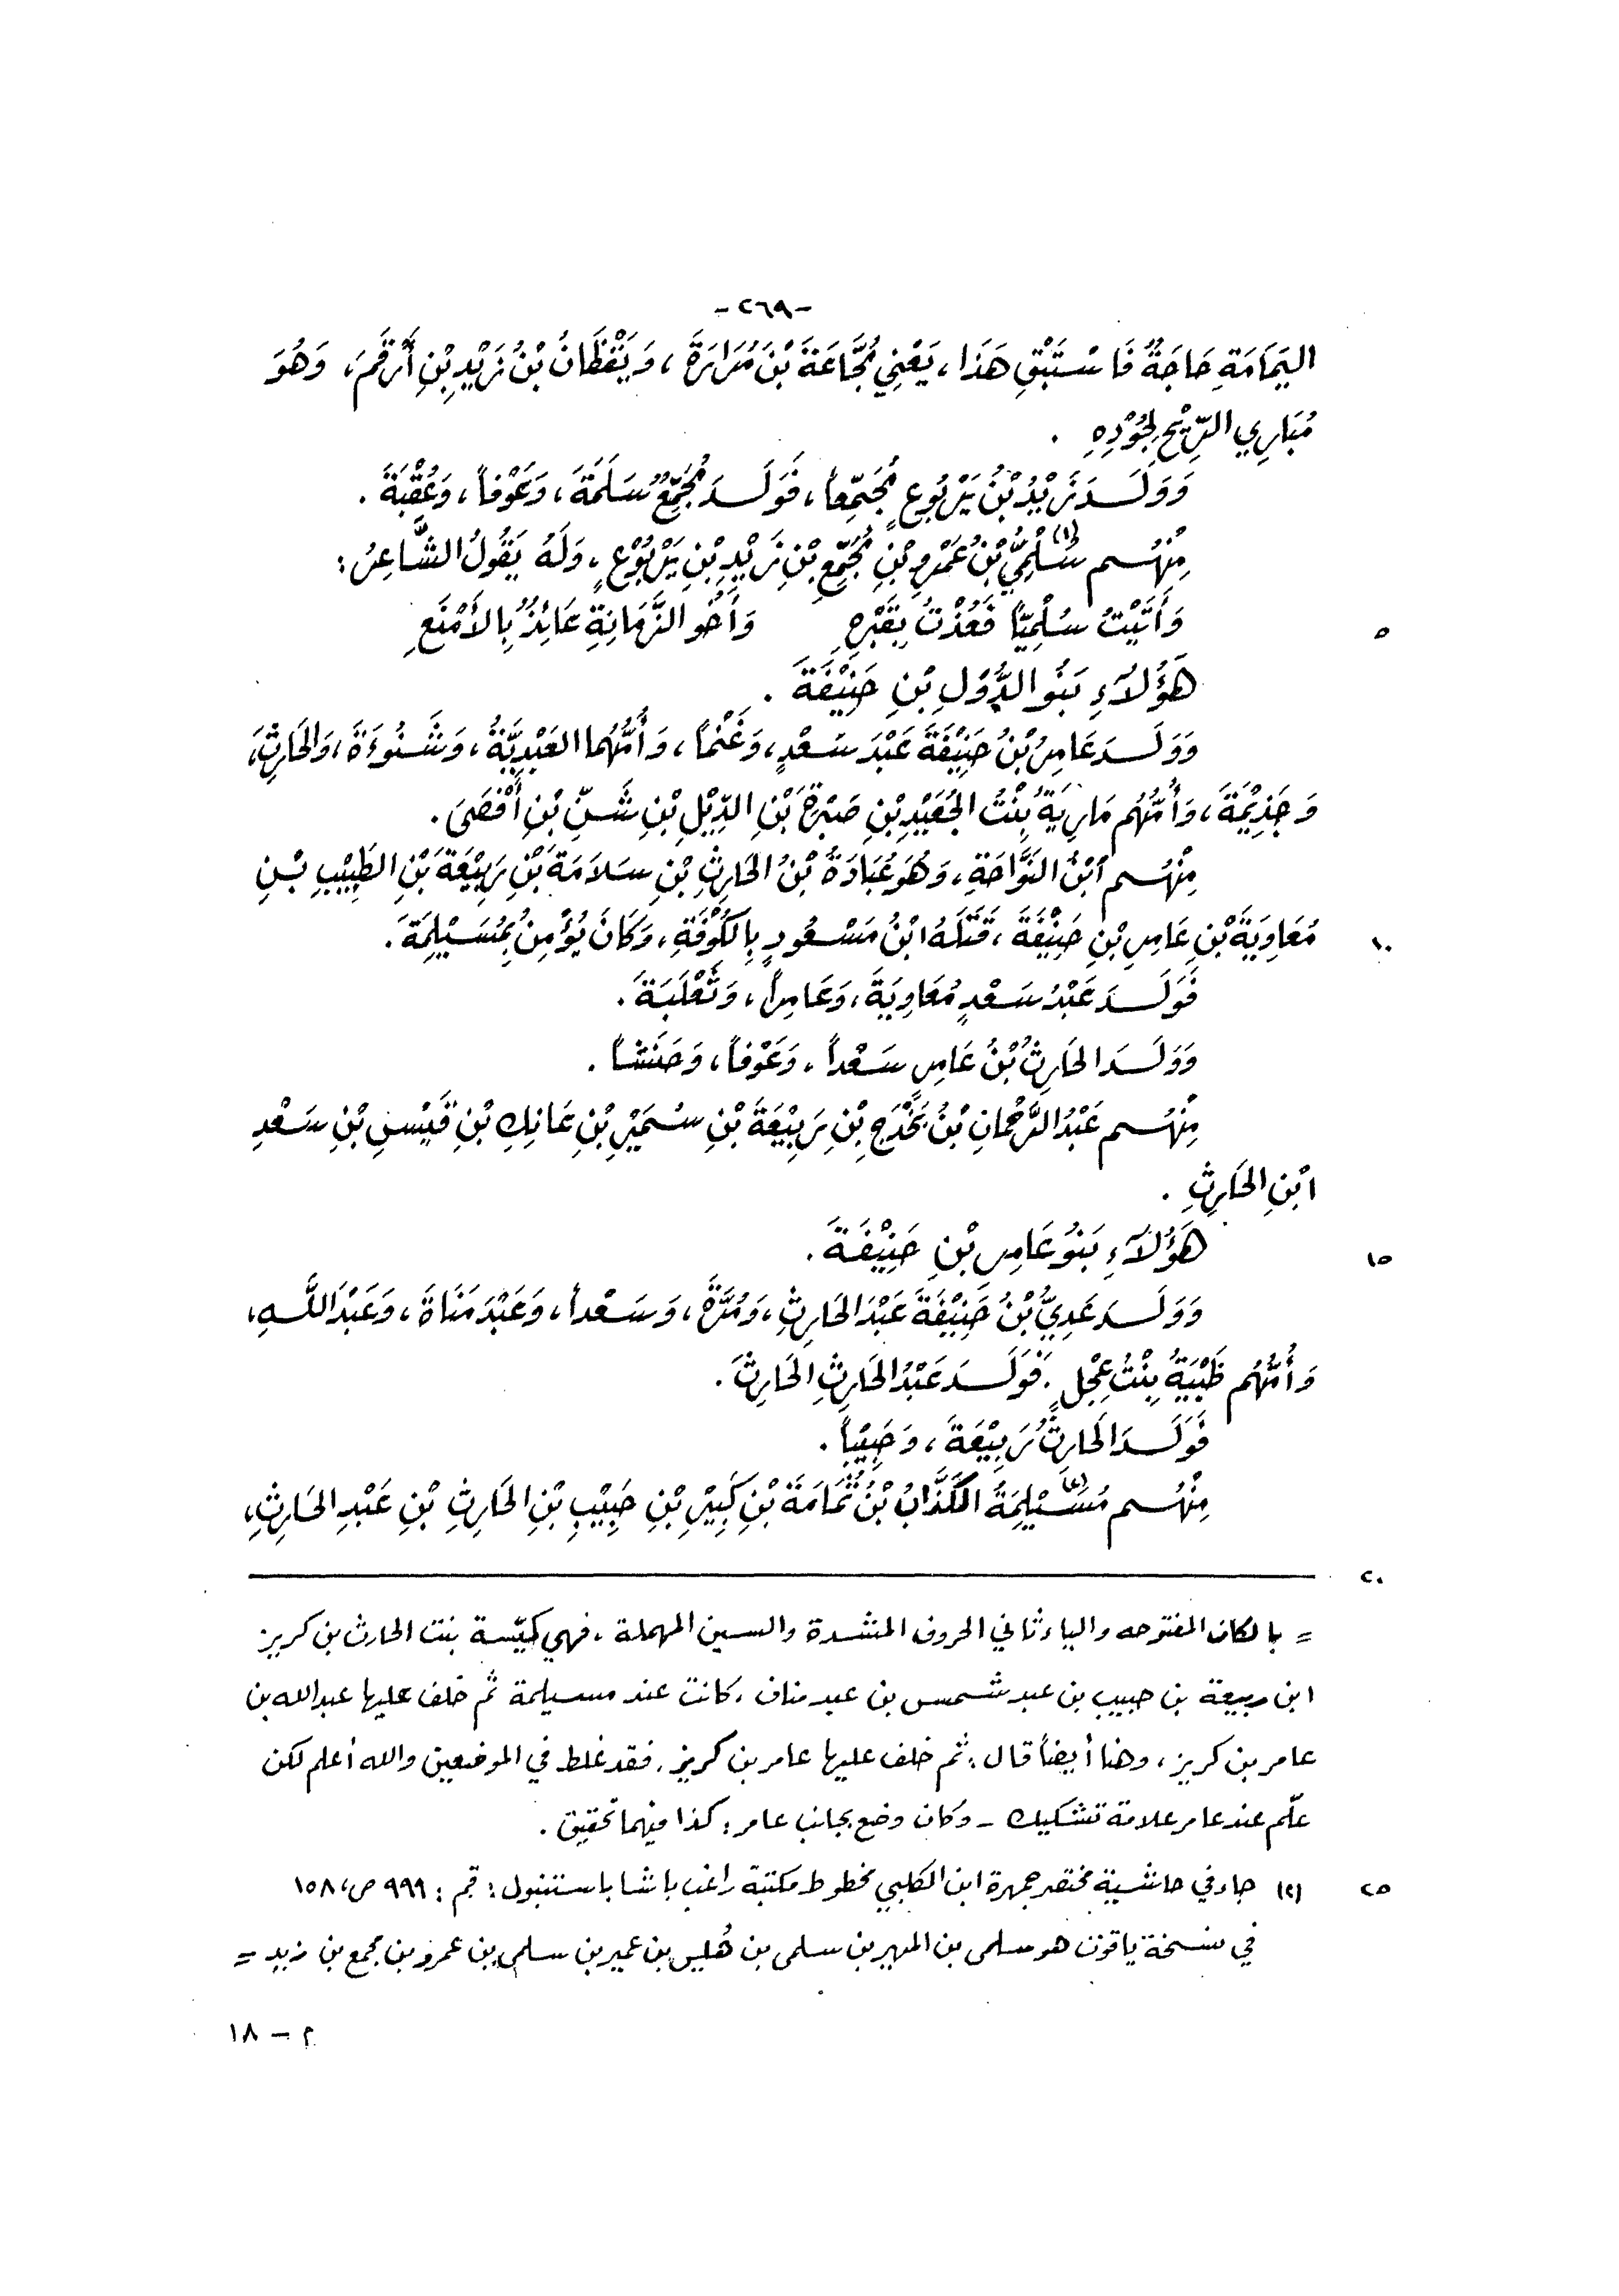 -٢٦٩-
اليَمَامَةِ حَاجَةٌ فَاسْتَبْقِ هَذَا، يَعْنِي مُجَّاعَةَ بْنَ مُرَارَةَ، وَيَقْظَانُ بْنُ زَيْدِ بْنِ أَرْقَمَ، وَهُوَ
مُبَارِي الرِّيْحِ لِجُوْدِهِ .
وَوَلَدَ زَيْدُ بْنُ يَرْبُوعٍ مُجَمِّعاً، فَوَلَدَ مُجَمِّعٌ سَلَمَةَ، وَعَوْفاً، وَعُقْبَةَ.
مِنْهُم سُلْمِيُّ(١) بْنُ عَمْرِو بْنِ مُجَمِّعِ بْنِ زَيْدِ بْنِ يَرْبُوْعٍ، وَلَهُ يَقُولُ الشَّاعِرُ:
٥ وَأَتَيْتُ سُلْمِيّاً فَعُذْتُ بِقَبْرِهِ وَأَخُو الزَّمَانَةِ عَائِذٌ بِالأَمْنَعِ
هَؤُلَاءِ بَنُو الدُّوَلِ بْنِ حَنِيْفَةَ .
وَوَلَدَ عَامِرُ بْنُ حَنِيْفَةَ عَبْدَ سَعْدٍ، وَغَنْماً، وَأُمُّهُما العَبْدِيَّةُ، وَشَنُوءَةَ، وَالحَارِثَ،
وَجَذِيْمَةَ، وَأُمُّهُم مَارِيَةُ بِنْتُ الجُعَيْدِ بْنِ صَبْرَةَ بْنِ الدِّيْلِ بْنِ شَنِّ بْنِ أَفْصَى.
مِنْهُم ابْنُ النَّوَّاحَةِ، وَهُوَ عُبَادَةُ بْنُ الحَارِثِ بْنِ سَلَامَةَ بْنِ رَبِيْعَةَ بْنِ الطَّبِيْبِ بْنِ
١٠ مُعَاوِيَةَ بْنِ عَامِرِ بْنِ حَنِيْفَةَ، قَتَلَهُ ابْنُ مَسْعُودٍ بِالكُوْفَةِ، وَكَانَ يُؤْمِنُ بِمُسَيْلِمَةَ.
فَوَلَدَ عَبْدُ سَعْدٍ مُعَاوِيَةَ، وَعَامِراً، وَثَعْلَبَةَ.
وَوَلَدَ الحَارِثُ بْنُ عَامِرٍ سَعْداً، وَعَوْفاً، وَحَنَشاً.
مِنْهُم عَبْدُ الرَّحْمَانِ بْنُ بَخْدَجِ بْنِ رَبِيْعَةَ بْنِ سُمَيْرِ بْنِ عَاتِكِ بْنِ قَيْسِ بْنِ سَعْدِ
ابْنِ الحَارِثِ .
١٥ هَؤُلَاءِ بَنُو عَامِرِ بْنِ حَنِيْفَةَ.
وَوَلَدَ عَدِيُّ بْنُ حَنِيْفَةَ عَبْدَ الحَارِثِ، وَمُرَّةَ، وَسَعْداً، وَعَبْدَ مَنَاةَ، وَعَبْدَ اللَّهِ،
وَأُمُّهُم ظَبْيَةُ بِنْتُ عِجْلٍ. فَوَلَدَ عَبْدُ الحَارِثِ الحَارِثَ.
فَوَلَدَ الحَارِثُ رَبِيْعَةَ، وَحَبِيْباً.
مِنْهُم مُسَيْلِمَةُ(٤) الكَذَّابُ بْنُ ثُمَامَةَ بْنِ كَبِيْرِ بْنِ حَبِيْبِ بْنِ الحَارِثِ بْنِ عَبْدِ الحَارِثِ،
٢٠
= بالكاف المفتوحه والياء ثاني الحروف المشددة والسين المهملة، فهي كيّسة بنت الحارث بن كريز
ابن ربيعة بن حبيب بن عبد شمس بن عبد مناف، كانت عند مسيلمة ثم خلف عليها عبدالله بن
عامر بن كريز، وهنا أيضاً قال: ثم خلف عليها عامر بن كريز، فقد غلط في الموضعين والله أعلم لكن
علّم عند عامر علامة تشكيك - وكان وضع بجانب عامر: كذا فيهما تحقيق.
٢٥ (٢) جاء في حاشية مختصر جمهرة ابن الكلبي مخطوط مكتبة راغب باشا باستنبول: قم: ٩٩٩ ص، ١٥٨
في نسخة ياقوت هو سلمى بن المهير بن سلمى بن هُليس بن عمير بن سلمى بن عمرو بن مجمع بن زيد =
م - ١٨